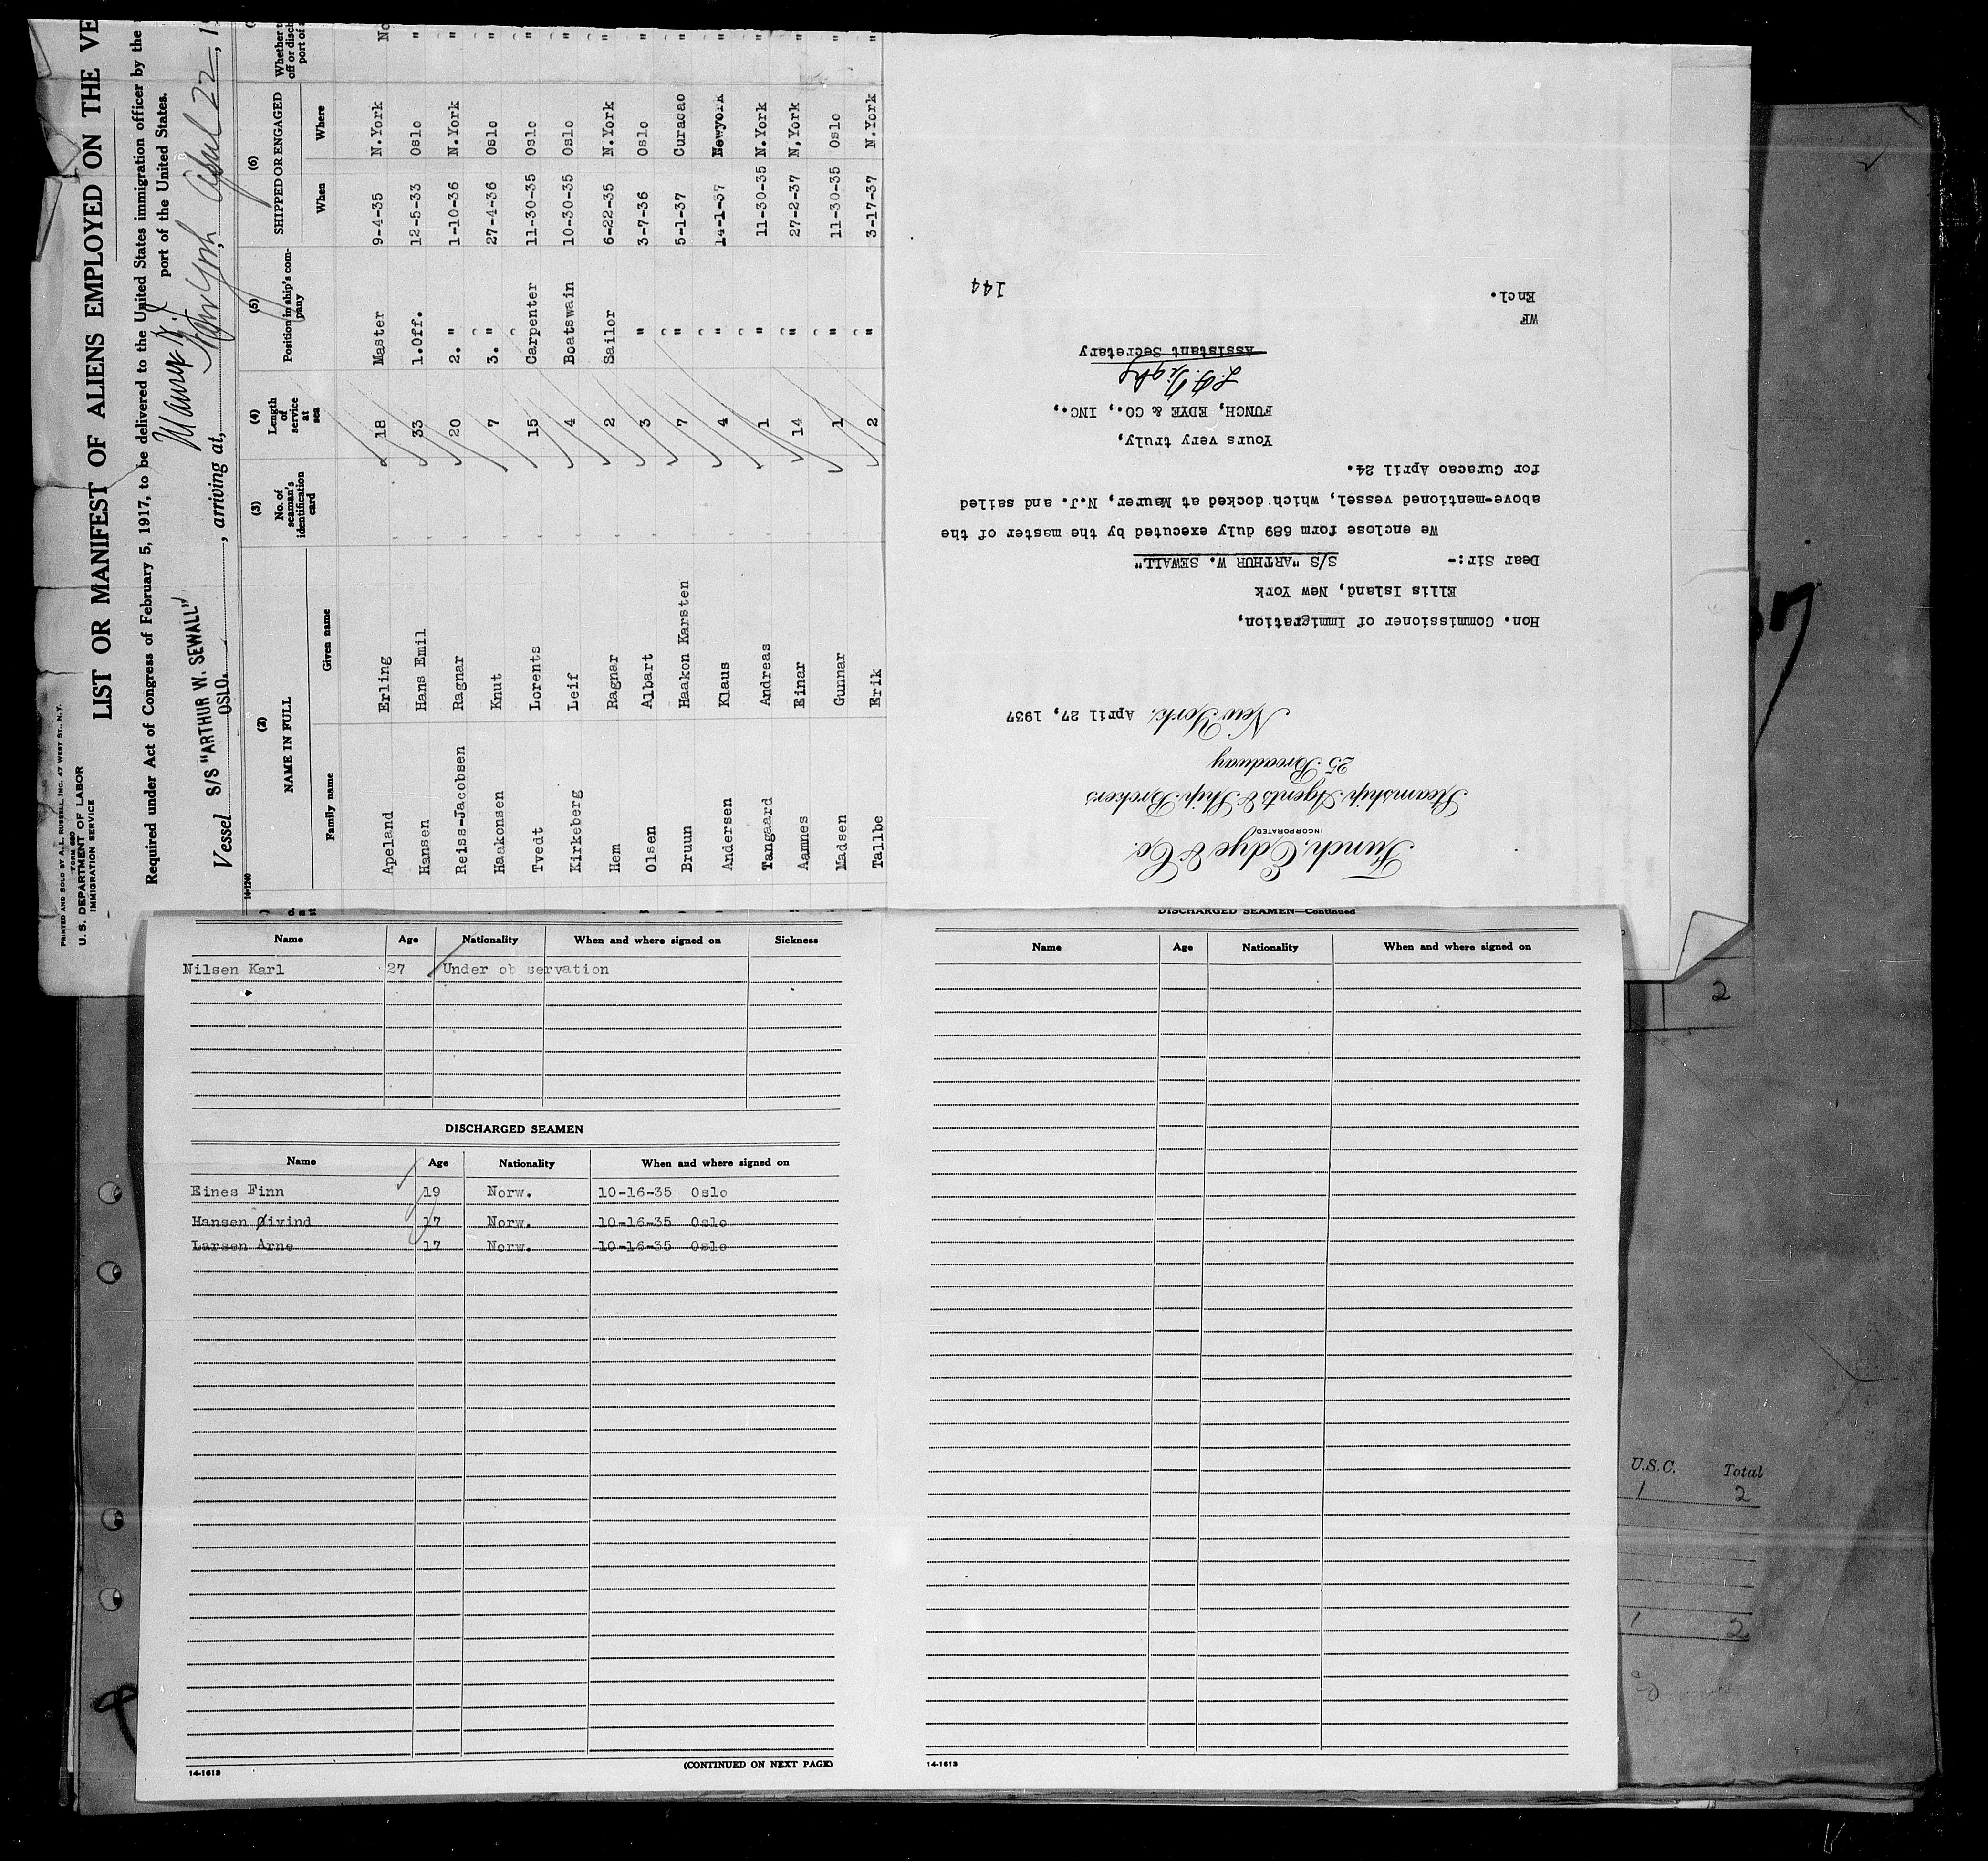 PRINTED AND SOLD BY A. L. RUSSELL, INC. 47 WEST ST., N.Y.
FORM 680
U. S. DEPARTMENT OF LABOR
IMMIGRATION SERVICE
LIST OR MANIFEST OF ALIENS EMPLOYED ON THE VE
Required under Act of Congress of February 5, 1917, to be delivered to the United States immigration officer by the
port of the United States.
Vessel S/S "ARTHUR W. SEWALL" OSLO., arriving at, New York, April 22, 1
14-1240
(2) (3) (4) (5) (6)
NAME IN FULL No. of seaman's identification card Length of service at sea Position in ship's company SHIPPED OR ENGAGED Whether
Family name Given name When Where
Apeland Erling 18 Master 9-4-35 N.York No
Hansen Hans Emil 33 1.Off. 12-5-33 Oslo "
Reiss-Jacobsen Ragnar 20 2. " 1-10-36 N.York "
Haakonsen Knut 7 3. " 27-4-36 Oslo "
Tvedt Lorents 15 Carpenter 11-30-35 Oslo "
Kirkeberg Leif 4 Boatswain 10-30-35 Oslo "
Hem Ragnar 2 Sailor 6-22-35 N.York "
Olsen Albart 3 " 3-7-36 Oslo "
Bruun Haakon Karsten 7 " 5-1-37 Curacao "
Andersen Klaus 4 " 14-1-37 Newyork "
Tangaard Andreas 1 " 11-30-35 N.York "
Aamnes Einar 14 " 27-2-37 N,York "
Madsen Gunnar 1 " 11-30-35 Oslo "
Tallbe Erik 2 " 3-17-37 N.York "
Funch, Edye & Co.
INCORPORATED
Steamship Agents & Ship Brokers
25 Broadway
New York, April 27, 1937
Hon. Commissioner of Immigration,
Ellis Island, New York
Dear Sir:- S/S "ARTHUR W. SEWALL"
We enclose form 689 duly executed by the master of the
above-mentioned vessel, which docked at Maurer, N.J. and sailed
for Curacao April 24.
Yours very truly,
FUNCH, EDYE & CO., INC.,
Assistant Secretary
WF
Encl.
144
Name Age Nationality When and where signed on Sickness
Nilsen Karl 27 Under observation
DISCHARGED SEAMEN
Name Age Nationality When and where signed on
Eines Finn 19 Norw. 10-16-35 Oslo
Hansen Øivind 17 Norw. 10-16-35 Oslo
Larsen Arne 17 Norw. 10-16-35 Oslo
(CONTINUED ON NEXT PAGE)
14-1613
DISCHARGED SEAMEN—Continued
Name Age Nationality When and where signed on
14-1613
2
U.S.C. Total
1 2
1 2